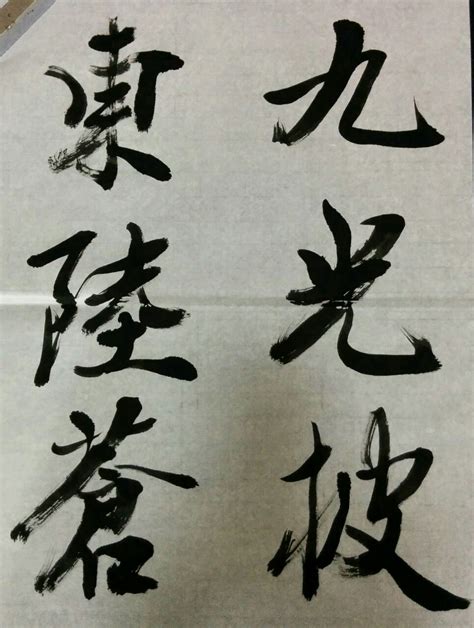 九光披
東陸蒼